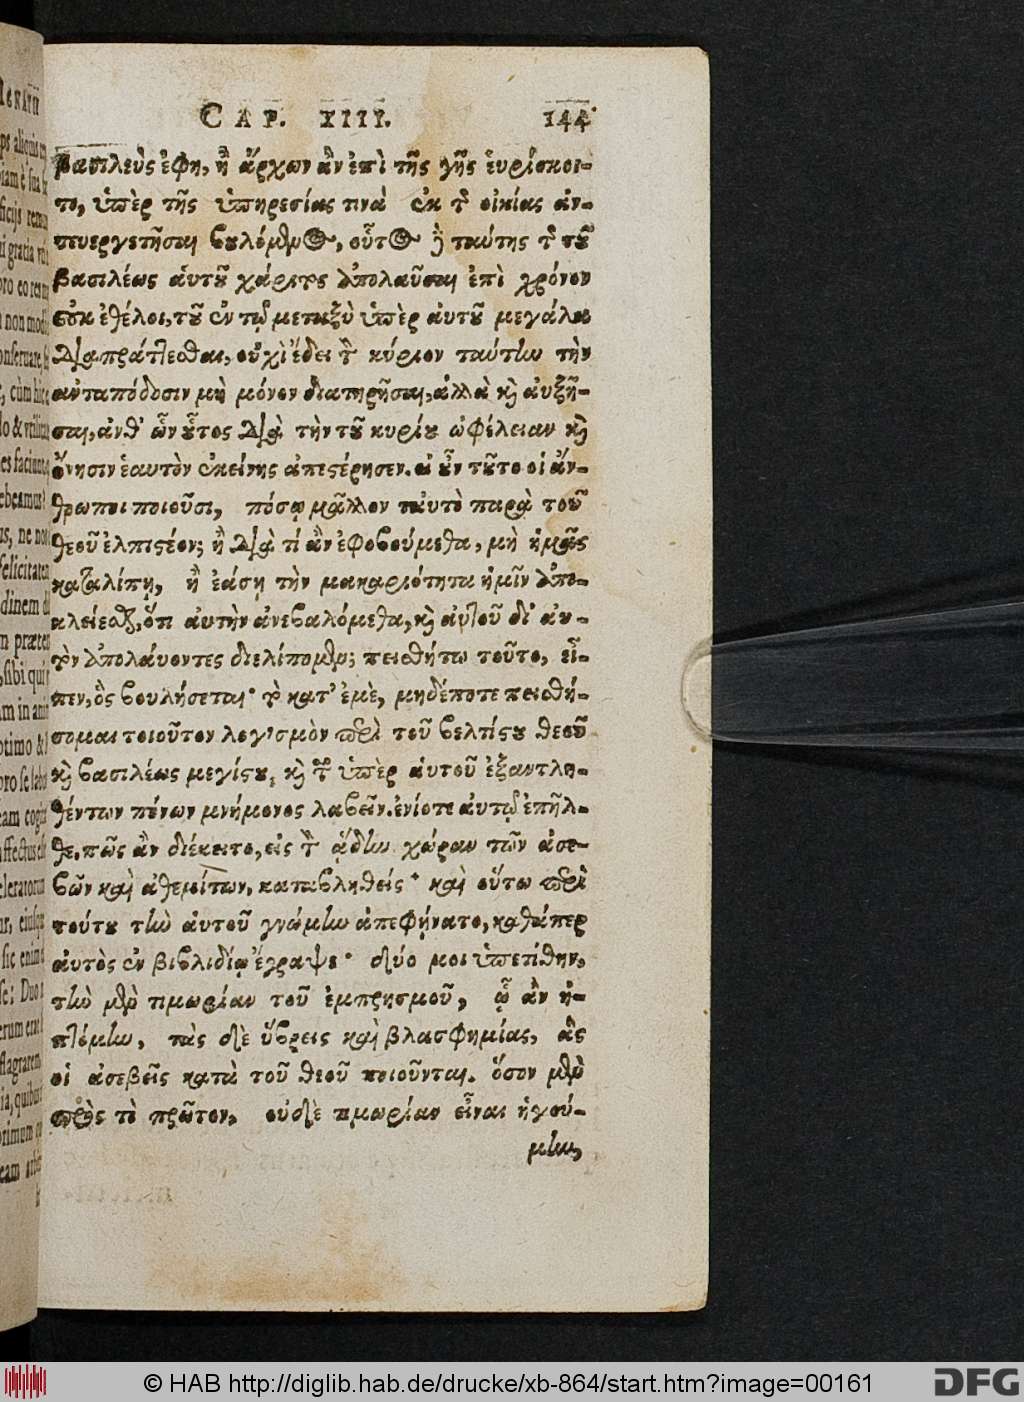 CAP. XIIII. 144
βασιλεὺς ἔφη, ἢ ἄρχων ἂν ἐπὶ τῆς γῆς εὑρίσκοι-
το, ὑπὲρ τῆς ὑπηρεσίας τινὰ ἐκ τῆς οἰκίας ἀν-
τευεργετῆσαι βουλόμενος, οὗτος ἢ ταύτης τῆς τοῦ
βασιλέως αὐτοῦ χάριτος ἀπολαῦσαι ἐπὶ χρόνον
οὐκ ἐθέλοι, τοῦ ἐν τῷ μεταξὺ ὑπὲρ αὐτοῦ μεγάλα
διαπράττεσθαι, οὐχὶ ἔδει τὸν κύριον ταύτην τὴν
ἀνταπόδοσιν μὴ μόνον διατηρῆσαι, ἀλλὰ καὶ αὐξῆ-
σαι, ἀνθ' ὧν οὗτος διὰ τὴν τοῦ κυρίου ὠφέλειαν καὶ
ὄνησιν ἑαυτὸν ἐκείνης ἀπεστέρησεν. εἰ οὖν τοῦτο οἱ ἄν-
θρωποι ποιοῦσι, πόσῳ μᾶλλον ταὐτὸ παρὰ τοῦ
θεοῦ ἐλπιστέον; ἢ διὰ τί ἂν ἐφοβούμεθα, μὴ ἡμᾶς
καταλίπῃ, ἢ ἐάσῃ τὴν μακαριότητα ἡμῖν ἀπο-
κλείεσθαι, ὅτι αὐτὴν ἀνεβαλόμεθα, καὶ αὐτοῦ δι' αὐ-
τὸν ἀπολαύοντες διελίπομεν; πεισθήτω τοῦτο, εἶ-
πεν, ὃς βουλήσεται· τὸ κατ' ἐμὲ, μηδέποτε πεισθή-
σομαι τοιοῦτον λογισμὸν περὶ τοῦ βελτίστου θεοῦ
καὶ βασιλέως μεγίστου, καὶ τῶν ὑπὲρ αὐτοῦ ἐξαντλη-
θέντων πόνων μνήμονος λαβεῖν. ἐνίοτε αὐτῷ ἐπῆλ-
θε, πῶς ἂν διέκειτο, εἰς τὴν ᾅδην χώραν τῶν ἀσε-
βῶν καὶ ἀθεμίτων, καταβληθείς· καὶ οὕτω περὶ
τούτου τὴν αὐτοῦ γνώμην ἀπεφήνατο, καθάπερ
αὐτὸς ἐν βιβλιδίῳ ἔγραψε· δύο μοι ὑπετίθην,
τὴν μὲν τιμωρίαν τοῦ ἐμπρησμοῦ, ᾧ ἂν ἡ-
πτόμην, τὰς δὲ ὕβρεις καὶ βλασφημίας, ἃς
οἱ ἀσεβεῖς κατὰ τοῦ θεοῦ ποιοῦνται. ὅσον μὲν
πρὸς τὸ πρῶτον, οὐδὲ τιμωρίαν εἶναι ἡγού-
μην,
© HAB http://diglib.hab.de/drucke/xb-864/start.htm?image=00161
DFG